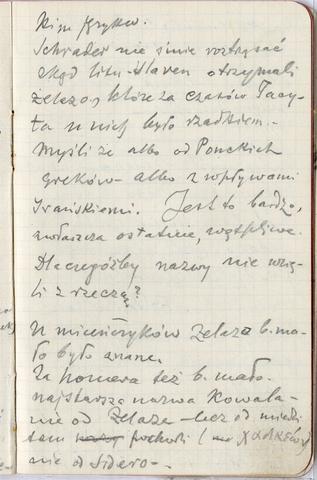 nim języku.
Schrader nie śmie roztrząsać
skąd litu-slaven otrzymali
żelazo, które za czasów Tacy-
ta u nich było rzadkiem. -
Myśli że albo od Ponckich
greków - albo z wpływami
Irańskiemi. Jest to bardzo,
zwłaszcza ostatnie, wątpliwe.
Dlaczegóżby nazwy nie wzię-
li z rzeczą?
U mieńczyków żelazo b. ma-
ło było znane.
Za homera też b. mało.
najstarsza nazwa Kowala -
nie od żelaza - lecz od miedzi
tam pochodzi (χαλκεύς)
nie od Sidero -